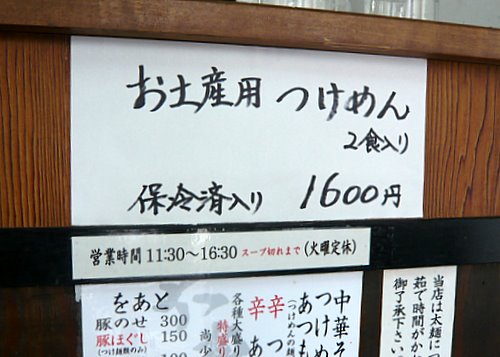 お土産用 つけめん
2食入り
保冷済入り 1600円
営業時間 11:30～16:30 スープ切れまで (火曜定休)
をあと
豚のせ 300
豚ほぐし 150
(つけ麺類のみ)
100
当店は太麺につ
茹で時間がか
御了承下さい
中華そ
つけめ
(つけめんの麺
あつも
辛
辛
あつ
各種大盛り
特盛り
尚少